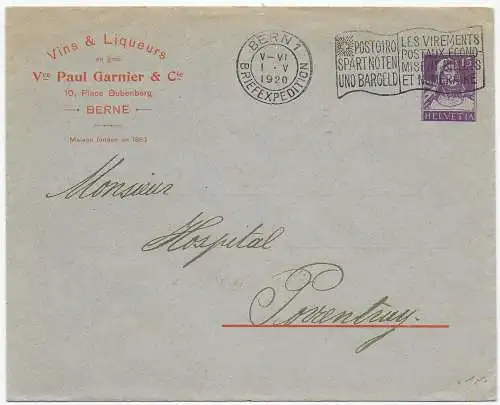 Vins & Liqueurs
en gros
Vve Paul Garnier & Cie
10, Place Bubenberg
BERNE
Maison fondée en 1863
BERN 1
V-VI
1.V
1920
BRIEFEXPEDITION
POSTGIRO
SPART NOTEN
UND BARGELD
LES VIREMENTS
POSTAUX ÉCONO-
MIS BILLETS
ET NUMÉRAIRE
15
HELVETIA
Monsieur
Hospital
Porrentruy.